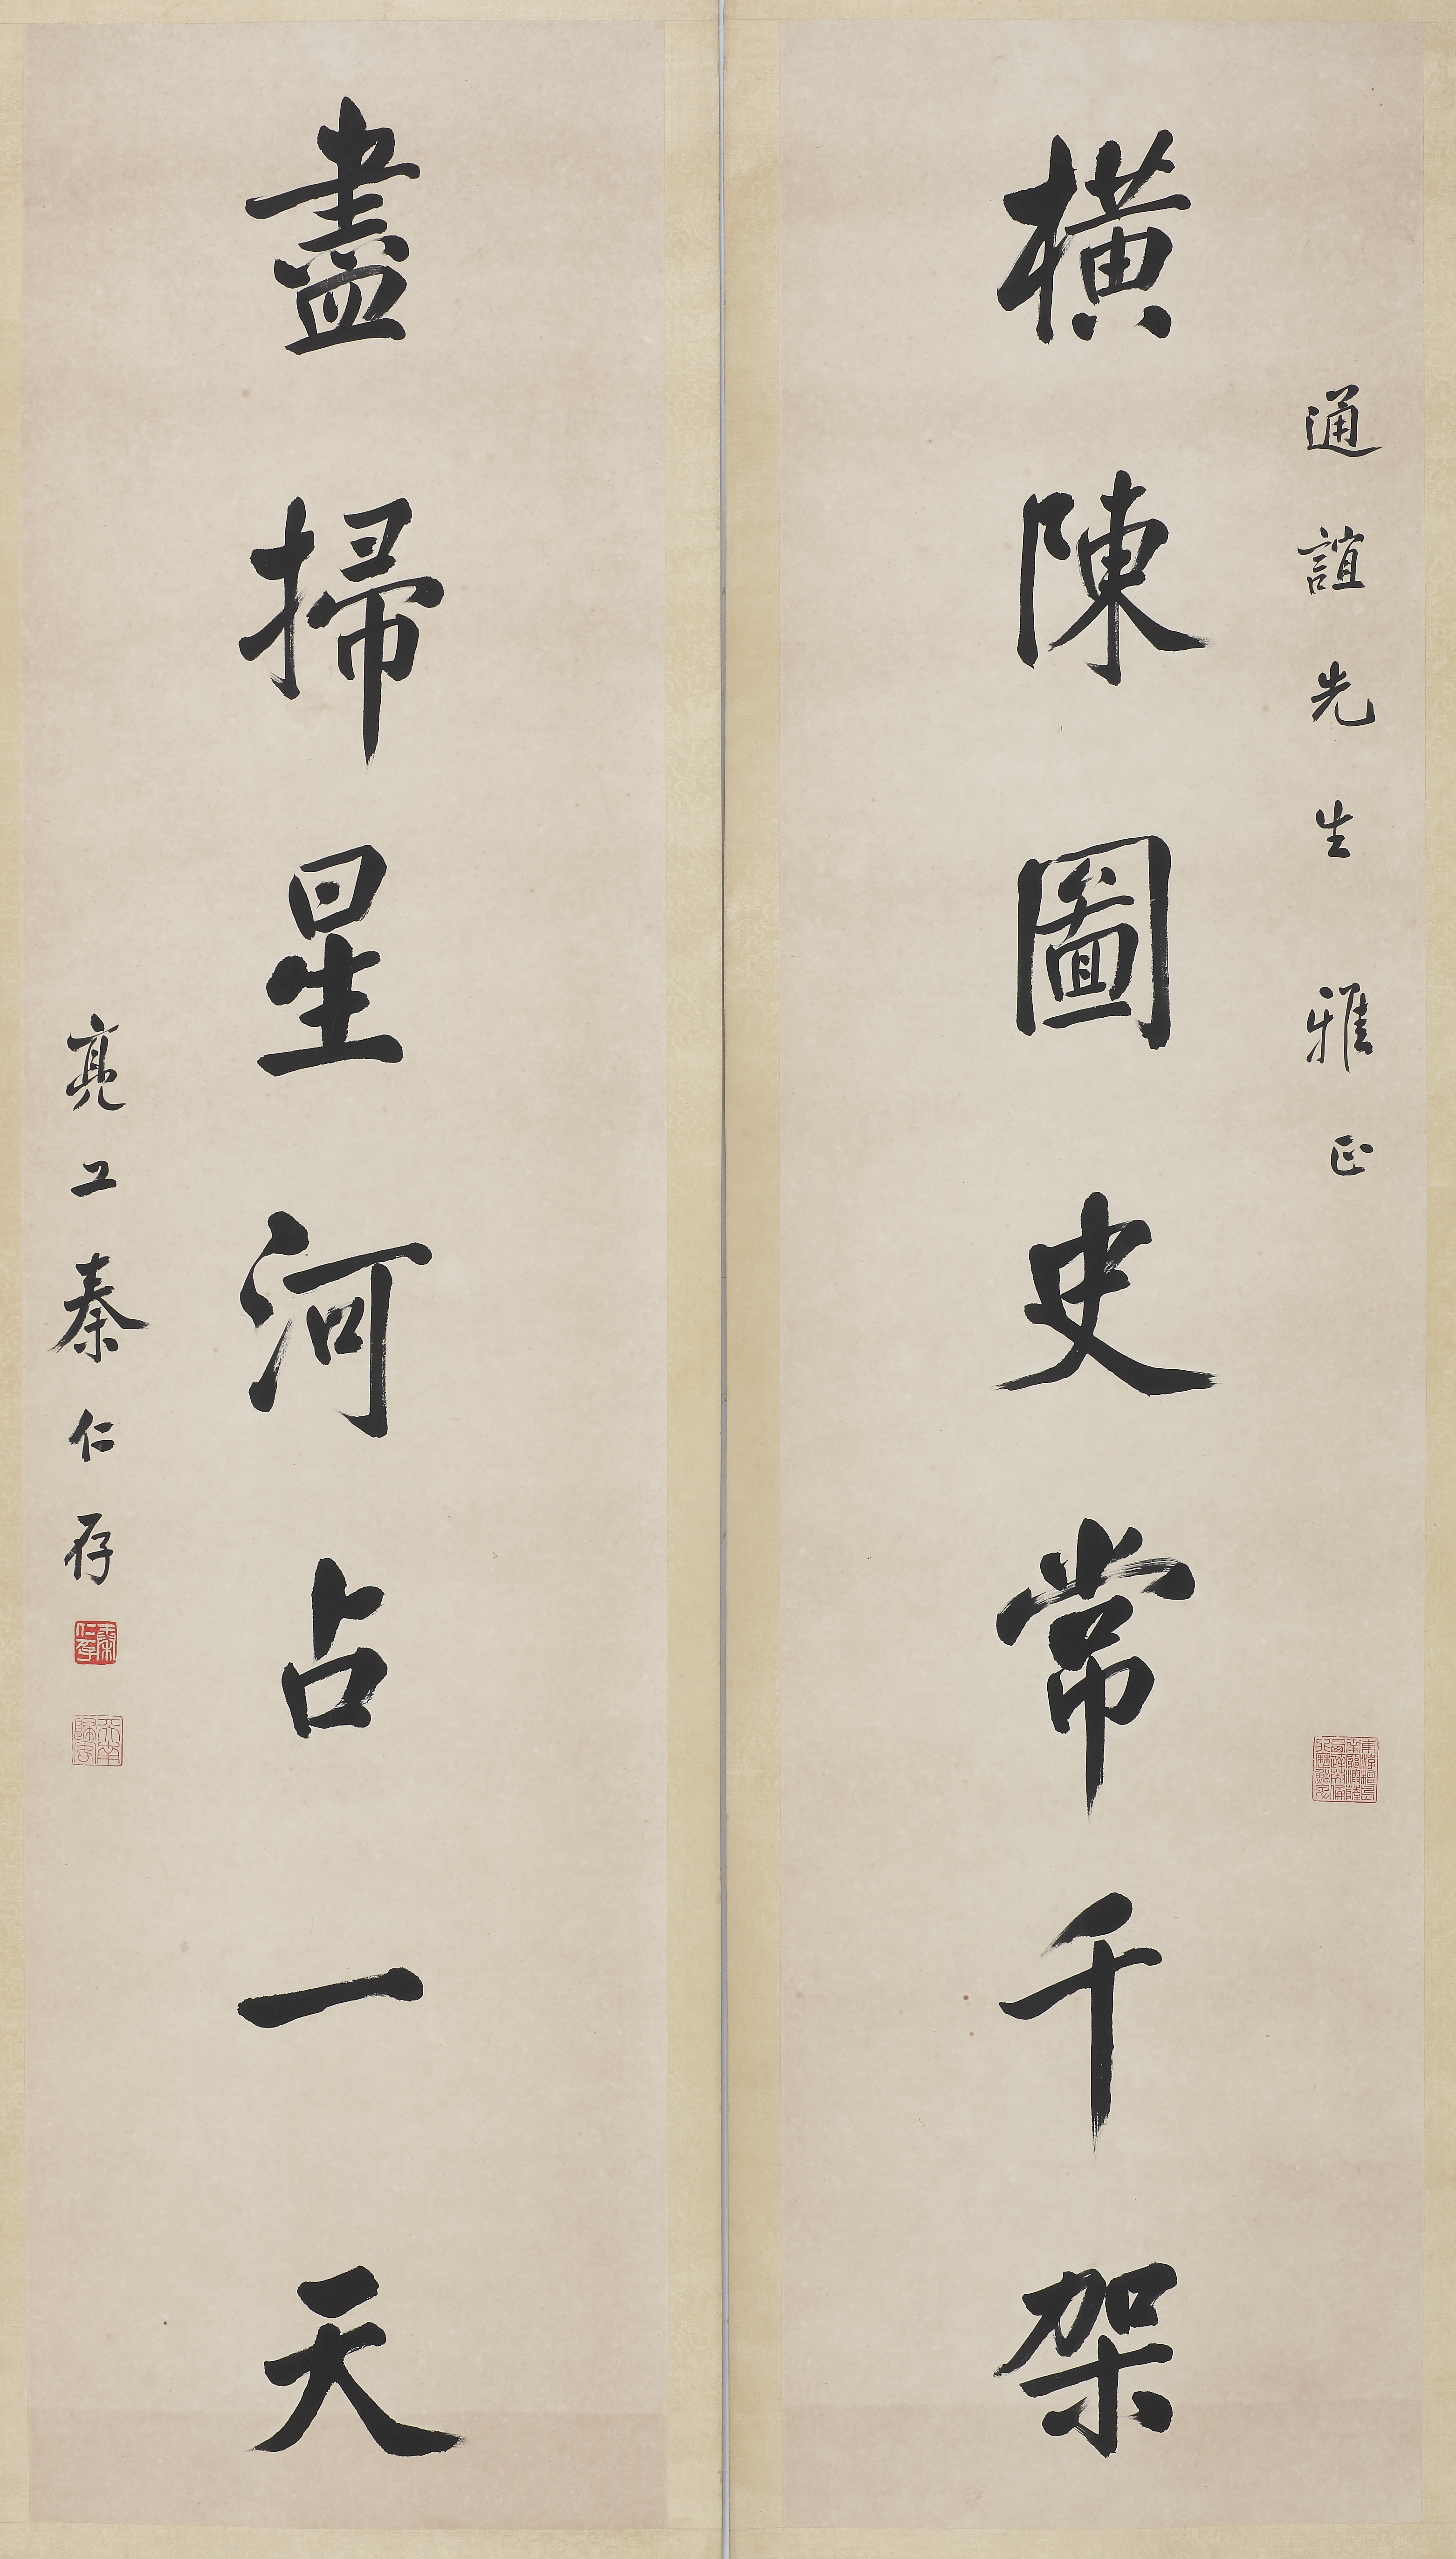 通誼先生雅正
橫陳圖史常千架
盡掃星河占一天
亮工秦仁存
秦仁存